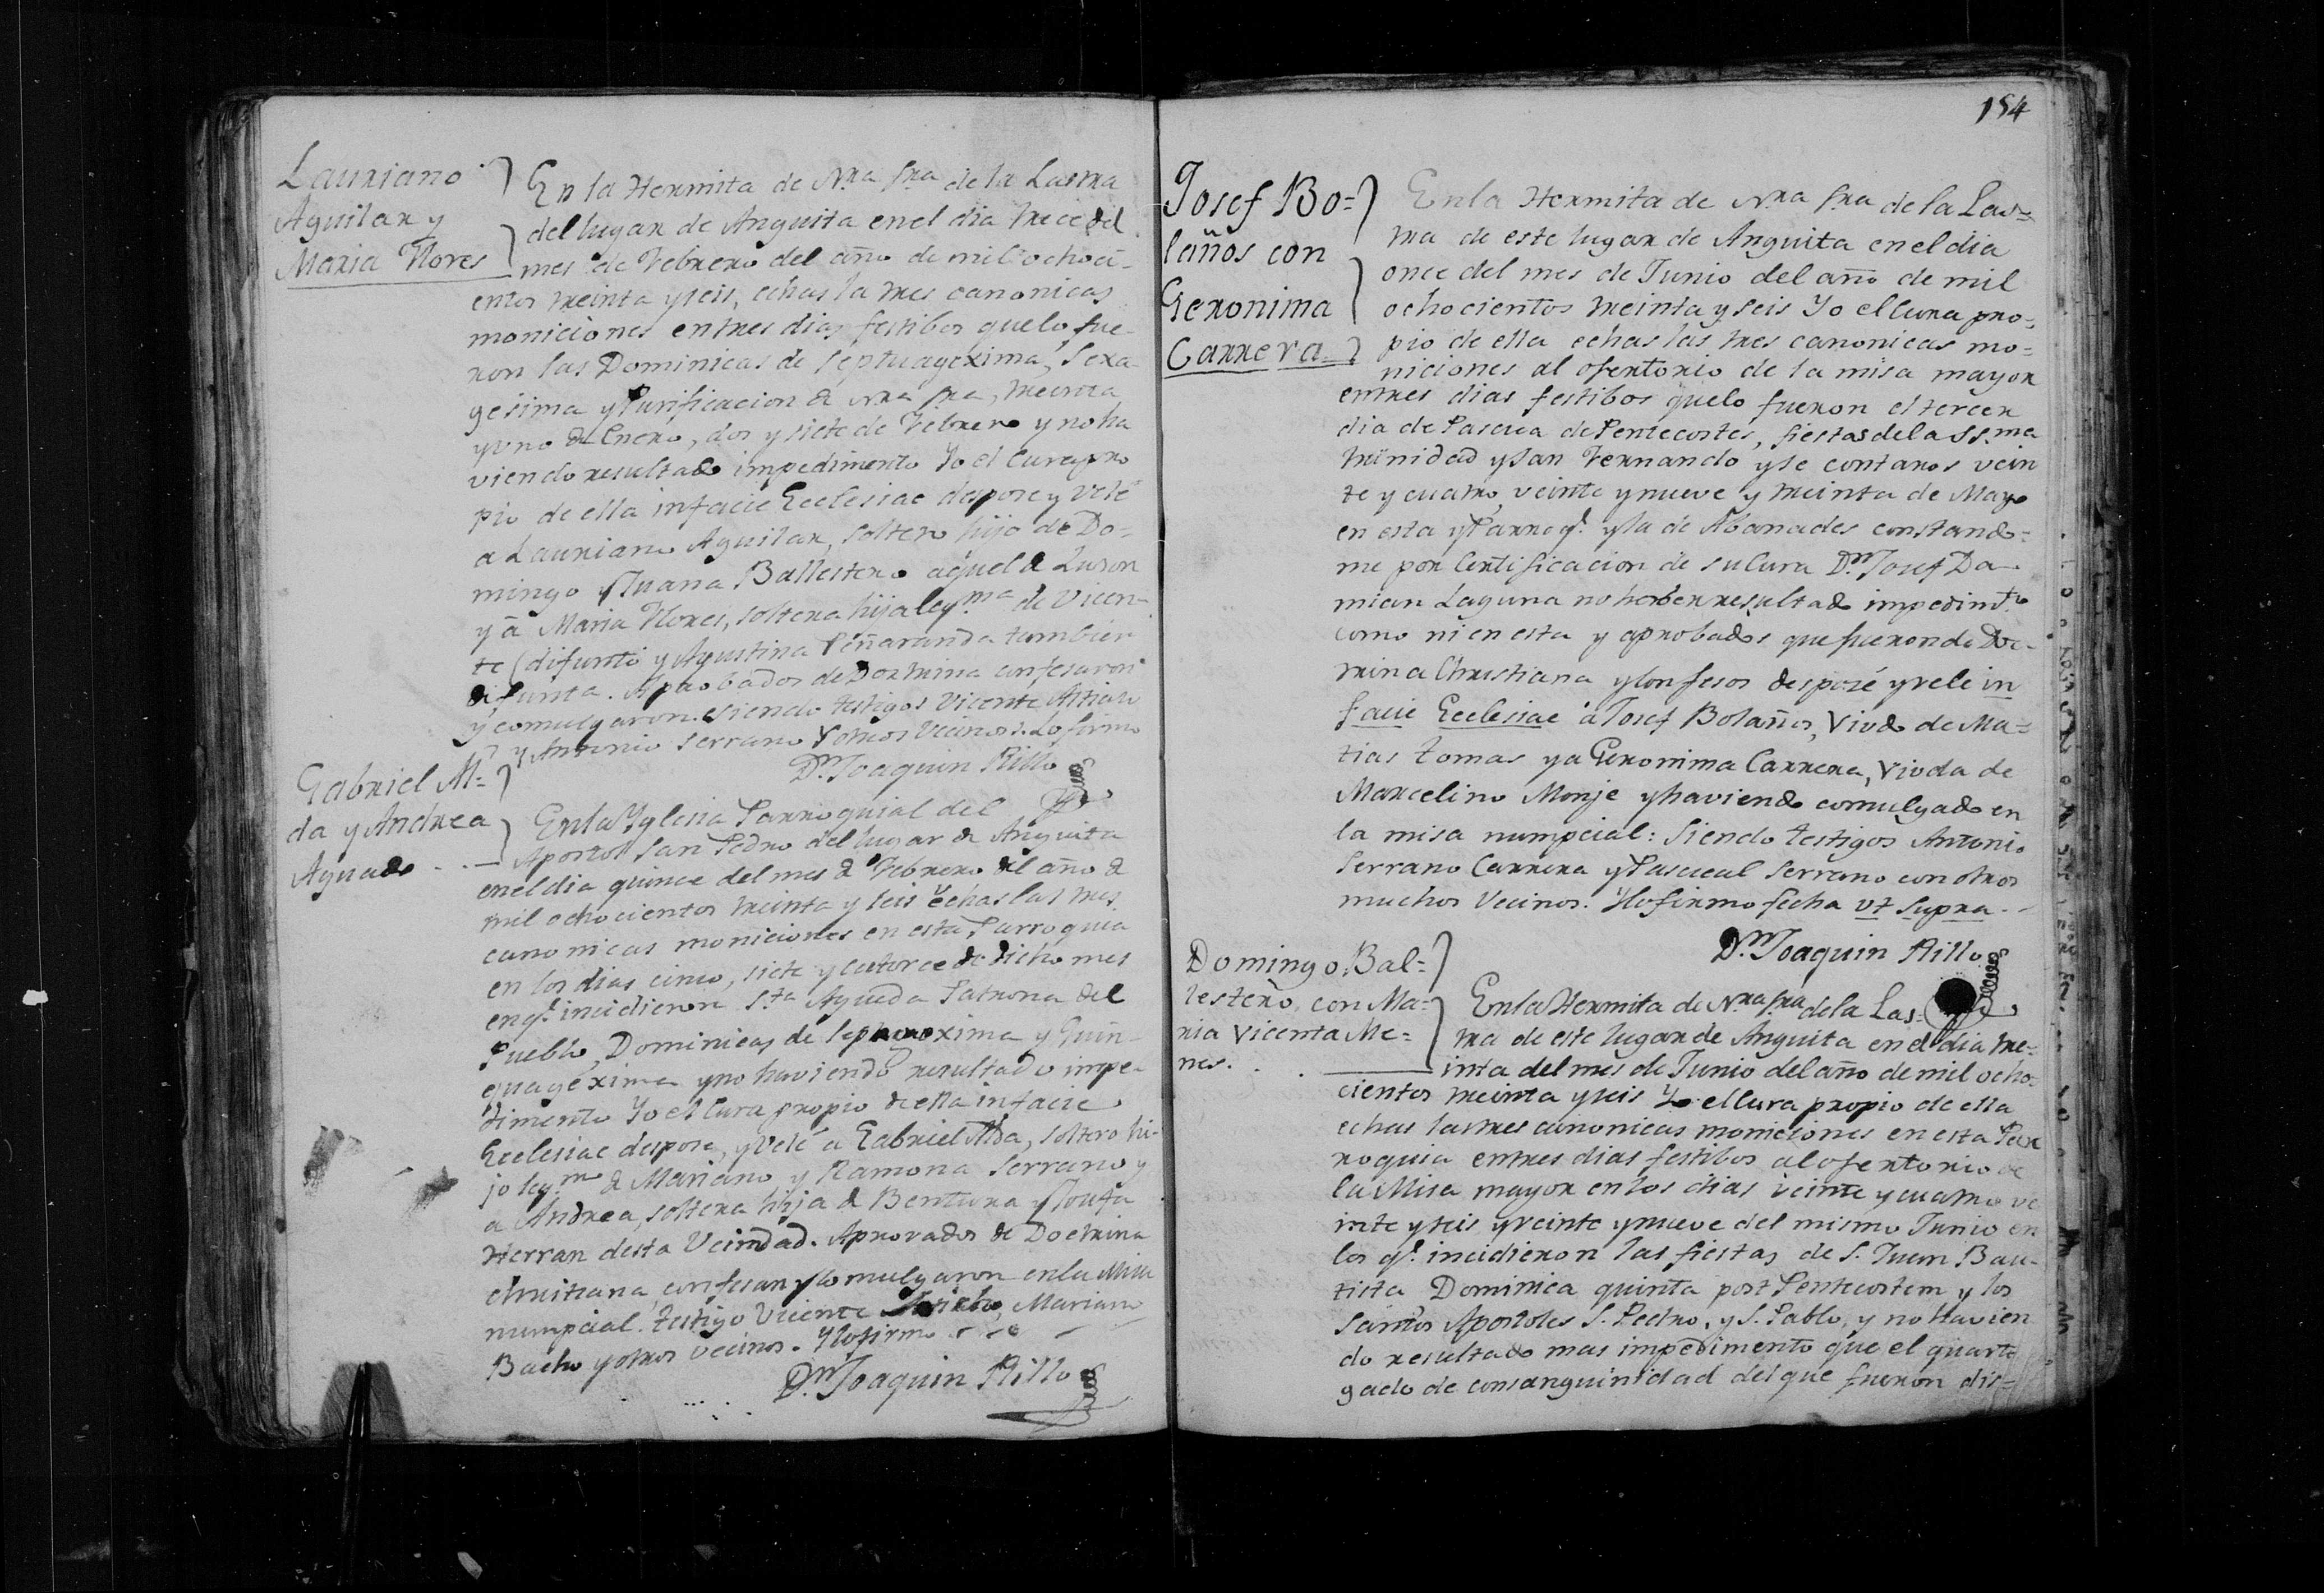 Lauriano
Aguilar y
Maria Flores
En la Hermita de Nra Sra de la Lastra
del lugar de Anguita en el dia trece del
mes de Febrero del año de mil ochoci-
entos treinta y seis, echas la tres canonicas
moniciones en tres dias festibos que lo fue-
ron las Dominicas de Septuagexima, Sexa-
gesima y Purificacion de Nra Sra, treinta
y uno de Enero, dos y siete de Febrero y no ha
viendo resultado impedimento Yo el Cura pro
pio de ella in facie Ecclesiae despose y Velé
a Lauriano Aguilar, soltero hijo de Do-
mingo y Juana Ballestero aquel de Luzon
y á Maria Flores, soltera hija legma de Vicen-
te (difunto y Agustina Peñaranda tambien
difunta. Aprobados de Doctrina confesaron
y comulgaron. siendo testigos Vicente
y Antonio Serrano y otros Vecinos. Lo firmo
Dn Joaquin Rillo
Gabriel Al=
da y Andrea
Aguado
En la Yglesia Parroquial del
Apostol San Pedro del lugar de Anguita
en el dia quince del mes de Febrero del año de
mil ochocientos treinta y seis echas las tres
canonicas moniciones en esta Parroquia
en los dias cinco, siete y catorce de dicho mes
en qe incidieron Sta Agueda Patrona del
Pueblo, Dominicas de Sexagexima y Quin-
quagexima y no haviendo resultado impe-
dimento Yo el Cura propio de ella in facie
Ecclesiae despose, y Velé a Gabriel Alda, soltero hi-
jo legmo de Mariano y Ramona Serrano y
a Andrea, soltera hija de Bentura y Josefa
Herran desta Vecindad. Aprovados de Doctrina
christiana, confesan y comulgaron en la Misa
numpcial. testigo Vicente Mariano
Bacho y otros vecinos. Y lo firmo
Dn Joaquin Rillo
154
Josef Bo=
laños con
Geronima
Carrera
En la Hermita de Nra Sra de la Las=
tra de este lugar de Anguita en el dia
once del mes de Junio del año de mil
ochocientos treinta y seis Yo el Cura pro=
pio de ella echas las tres canonicas mo=
niciones al ofertorio de la misa mayor
en tres dias festibos que lo fueron el tercer
dia de Pascua de Pentecostés, fiestas de la SS.ma
trinidad y San Fernando y se contaros vein
te y cuatro, veinte y nueve y treinta de Mayo
en esta Parroqa y la de Abanades constando=
me por Certificacion de su Cura Dn Josef Da-
mian Laguna no haber resultado impedimto
como ni en esta y aprobados que fueron de Doc-
trina Christiana y Confesos desposé y vele in
facie Ecclesiae á Josef Bolaños, Viudo de Ma=
tias Tomas y a Geronima Carrera, Viuda de
Marcelino Monje y haviendo comulgado en
la misa numpcial: Siendo testigos Antonio
Serrano Carrera y Pascual Serrano con otros
muchos Vecinos. Y lo firmo fecha vt supra.
Dn Joaquin Rillo
Domingo Bal=
lestero, con Ma=
ria Vicenta Me=
nes.
En la Hermita de Nra Sra de la Las-
tra de este lugar de Anguita en el dia tre-
inta del mes de Junio del año de mil ocho-
cientos treinta y seis Yo el Cura propio de ella
echas las tres canonicas moniciones en esta Par
roquia en tres dias festibos al ofertorio de
la Misa mayor en los dias veinte y cuatro ve
inte y seis y veinte y nueve del mismo Junio en
los qe incidieron las fiestas de S. Juan Bau-
tista Dominica quinta post Pentecostem y los
Santos Apostoles S. Pedro, y S. Pablo, y no havien
do resultado mas impedimento que el quarto
gado de consanguinidad del que fueron dis=